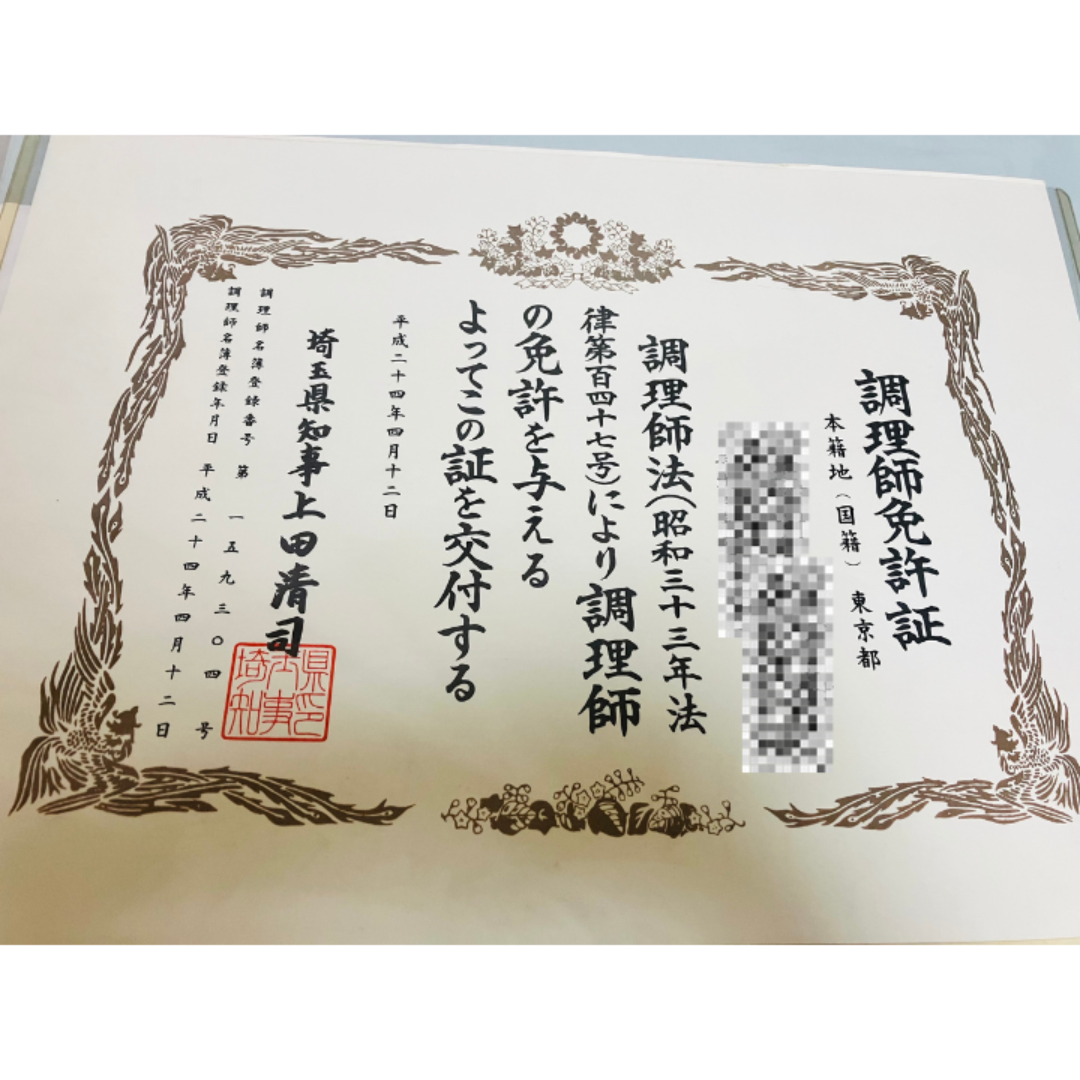 調理師免許証
本籍地(国籍) 東京都
調理師法(昭和三十三年法
律第百四十七号)により調理師
の免許を与える
よってこの証を交付する
平成二十四年四月十二日
埼玉県知事上田清司
調理師名簿登録番号 第一五九三〇四号
調理師名簿登録年月日 平成二十四年四月十二日